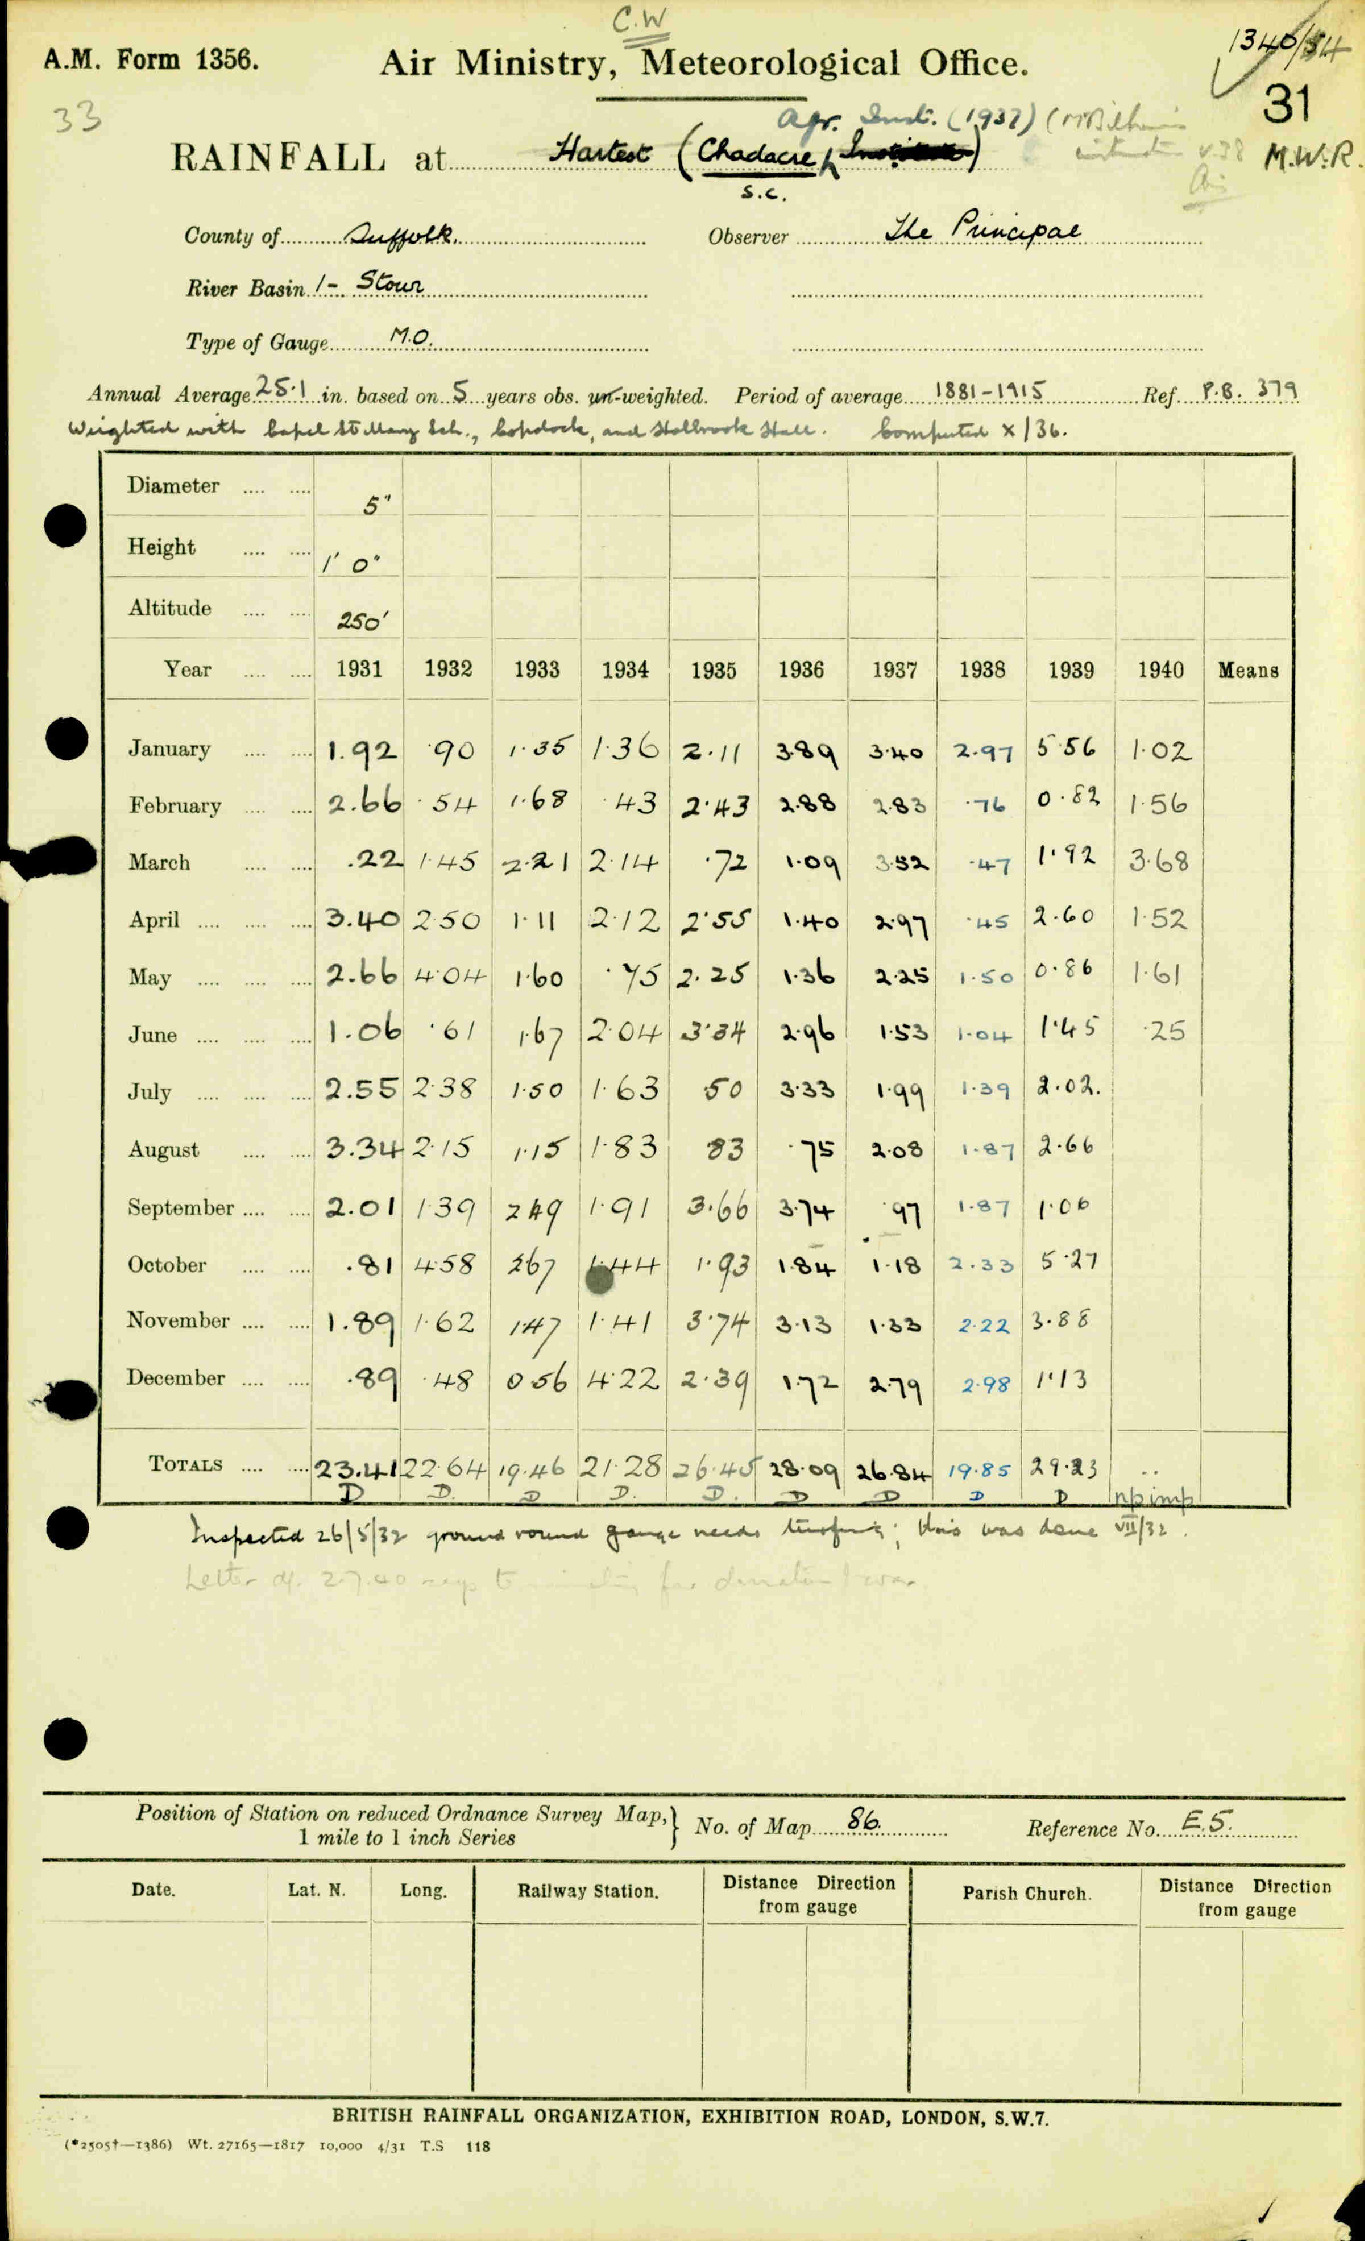 C.W
A.M. Form 1356. Air Ministry, Meteorological Office. 1340/34
33 31
Agr. Inst. (1937)
RAINFALL at Hartest (Chadacre) M.W.R.
S.C.
County of Suffolk. Observer The Principal
River Basin 1- Stour
Type of Gauge M.O.
Annual Average 25.1 in. based on 5 years obs. un-weighted. Period of average 1881-1915 Ref. P.B. 379
Weighted with Capel St Mary Sch., Copdock, and Holbrook Hall. Computed X/36.
Diameter .... .... 5"
Height .... .... 1' 0"
Altitude .... .... 250'
Year .... .... 1931 1932 1933 1934 1935 1936 1937 1938 1939 1940 Means
January .... .... 1.92 .90 1.35 1.36 2.11 3.89 3.40 2.97 5.56 1.02
February .... .... 2.66 .54 1.68 .43 2.43 2.88 2.83 .76 0.82 1.56
March .... .... .22 1.45 2.21 2.14 .72 1.09 3.52 .47 1.92 3.68
April .... .... .... 3.40 2.50 1.11 2.12 2.55 1.40 2.97 .45 2.60 1.52
May .... .... .... 2.66 4.04 1.60 .75 2.25 1.36 2.25 1.50 0.86 1.61
June .... .... .... 1.06 .61 1.67 2.04 3.34 2.96 1.53 1.04 1.45 .25
July .... .... .... 2.55 2.38 1.50 1.63 .50 3.33 1.99 1.39 2.02.
August .... .... 3.34 2.15 1.15 1.83 .83 .75 2.08 1.87 2.66
September .... .... 2.01 1.39 2.49 1.91 3.66 3.74 .97 1.87 1.06
October .... .... .81 4.58 2.67 1.44 1.93 1.84 1.18 2.33 5.27
November .... .... 1.89 1.62 1.47 1.41 3.74 3.13 1.33 2.22 3.88
December .... .... .89 .48 0.56 4.22 2.39 1.72 2.79 2.98 1.13
TOTALS .... .... 23.41 22.64 19.46 21.28 26.45 28.09 26.84 19.85 29.23 ..
D D. D D. D. D D D D np imp
Inspected 26/5/32 ground round gauge needs turfing; this was done VII/32.
Letter d/. 2.7.40 says for duration war
Position of Station on reduced Ordnance Survey Map, } No. of Map 86. Reference No. E.5.
1 mile to 1 inch Series
Date. Lat. N. Long. Railway Station. Distance Direction from gauge Parish Church. Distance Direction from gauge
BRITISH RAINFALL ORGANIZATION, EXHIBITION ROAD, LONDON, S.W.7.
(*2505†—1386) Wt. 27165—1817 10,000 4/31 T.S 118